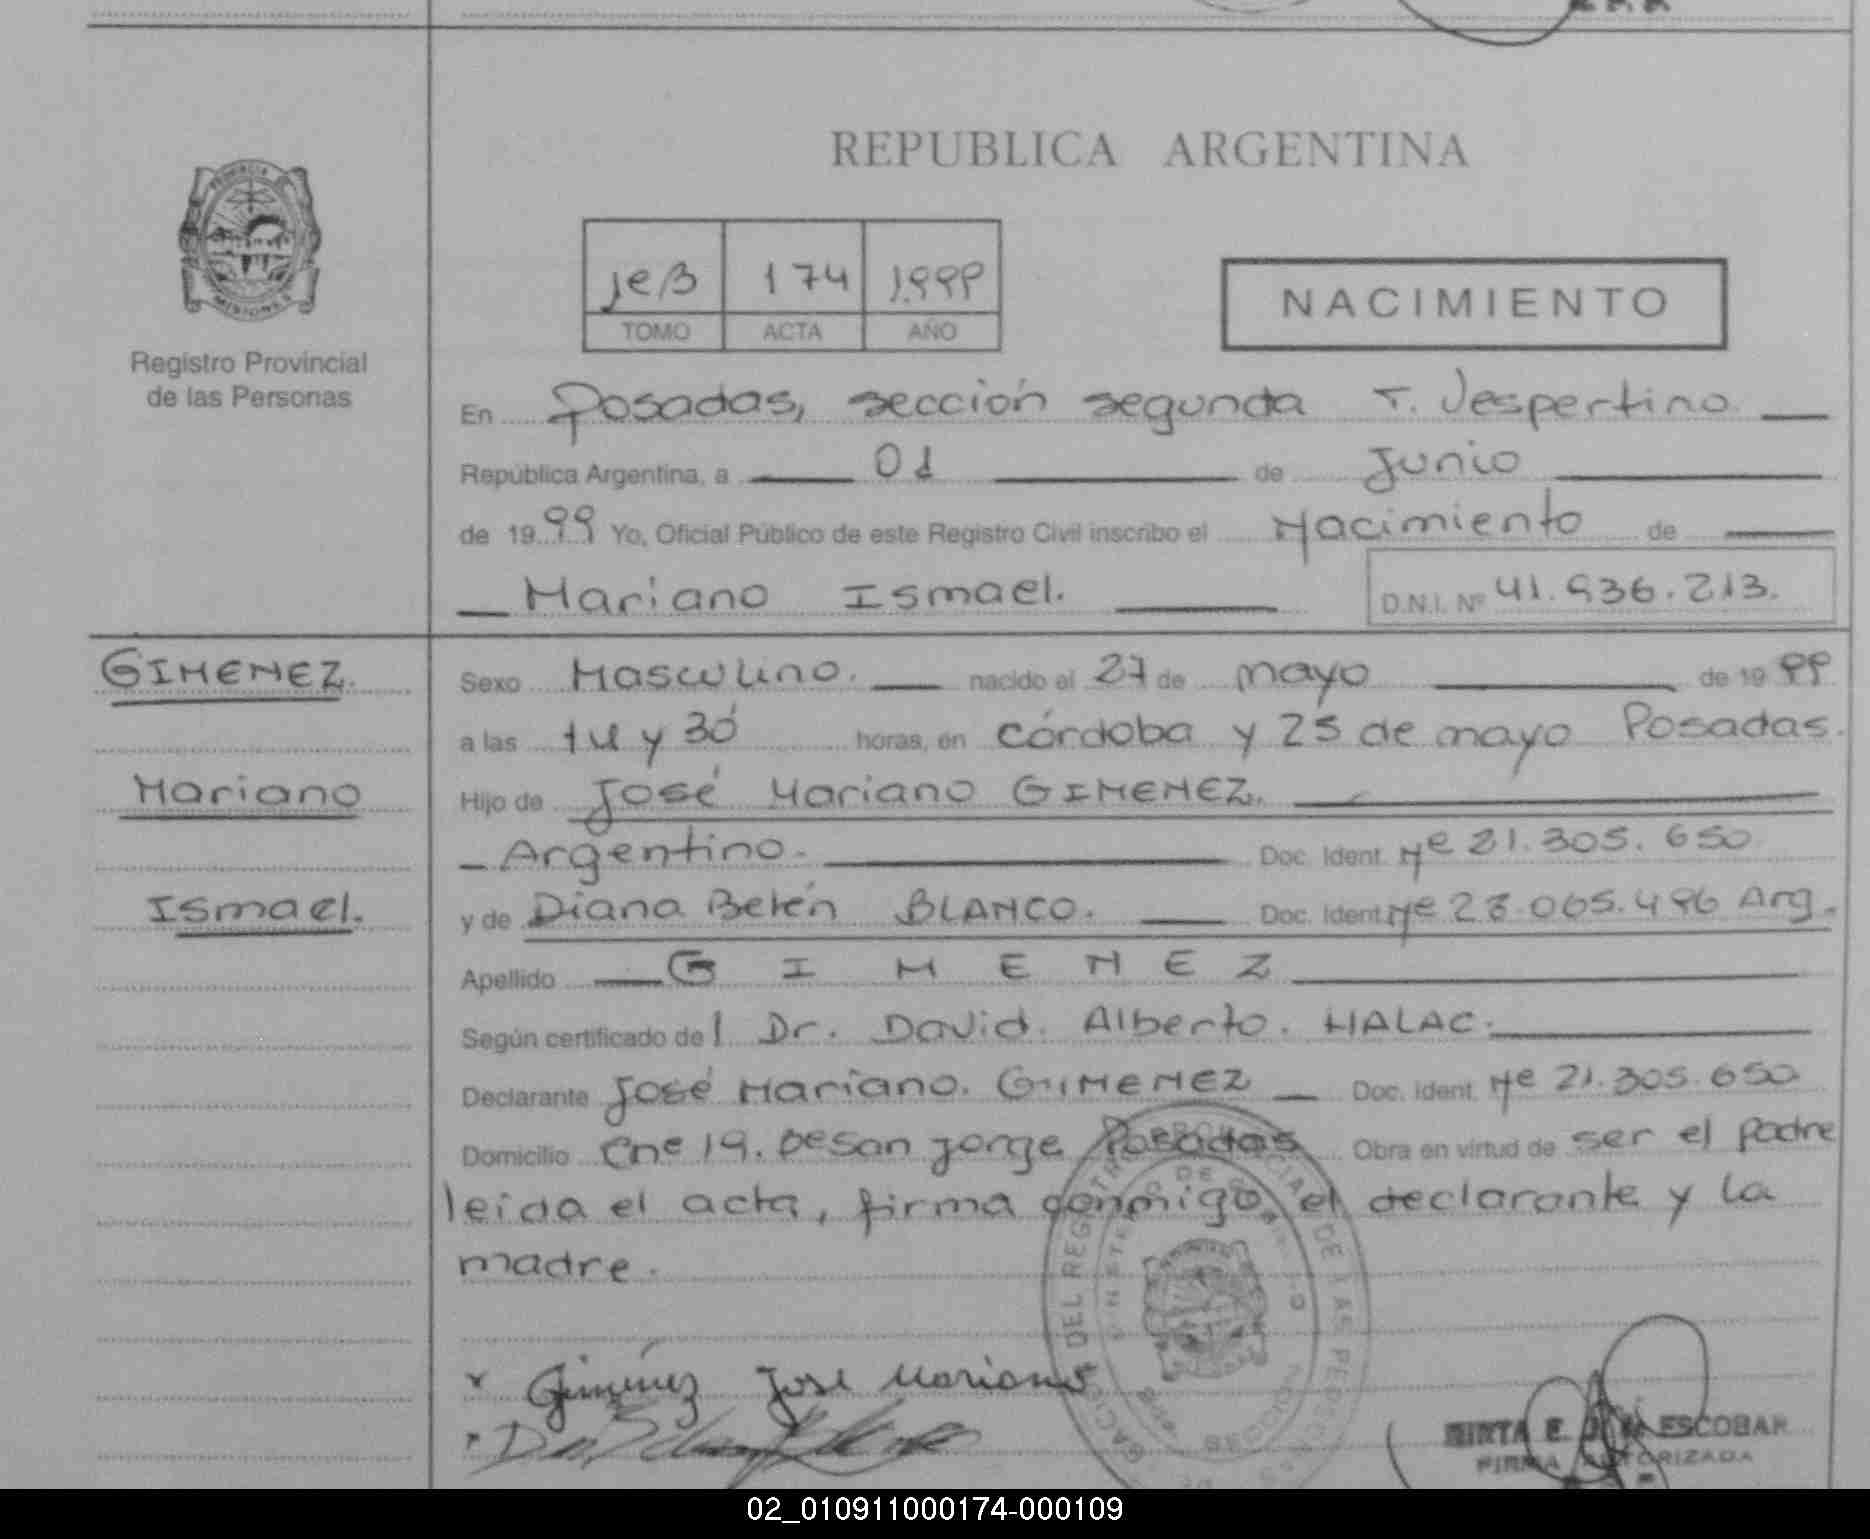 REPUBLICA ARGENTINA
174 1.999
TOMO ACTA AÑO
NACIMIENTO
Registro Provincial
de las Personas
En Posadas, sección segunda T. Vespertino
República Argentina, a 01 de Junio
de 19 99 Yo, Oficial Público de este Registro Civil inscribo el Nacimiento de
Mariano Ismael. D.N.I. Nº 41.936.213.
GIMENEZ. Sexo Masculino. nacido el 27 de mayo de 19 99
a las 14 y 30 horas, en córdoba y 25 de mayo Posadas.
Mariano Hijo de José Mariano GIMENEZ.
Argentino. Doc. Ident. Nº 21.305.650
Ismael. y de Diana Belén BLANCO. Doc. Ident. Nº 23.065.496 Arg.
Apellido GIMENEZ
Según certificado del Dr. David. Alberto. HALAC.
Declarante José Mariano. GIMENEZ Doc. Ident. Nº 21.305.650
Domicilio 19. Posadas Obra en virtud de ser el padre
leida el acta, firma conmigo el declarante y la
madre.
Giménez José Mariano
ESCOBAR
FIRMA AUTORIZADA
02_010911000174-000109